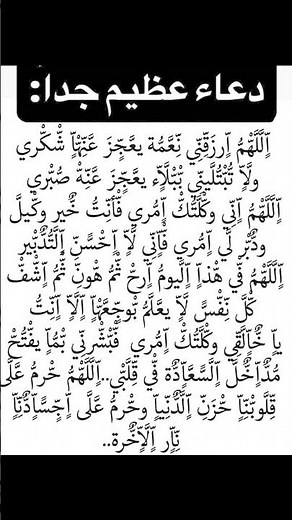 دعاء عظيم جدا:
اَللَّهُمُ اِرزَقِنِي نِعَمُة يعَجِز عَنِهْا شْكْري
ولَا تُبْتُلَيني بْبْلَاء يعَجِز عَنِهْ صُبْري
اَللَّهُمُ اِنِي وكَلَتُكْ اِمُري فَأنِتُ خَيِر وكَيلَ
ودُبْر لَي اِمُري فَأنِي لَا اِحْسَنِ اَلَتُدُبْير
اَللَّهُمُ في هْذا اَليومُ اِرحْ ثُمُ هْونِ ثُمُ اِشْفْ
كلَ نِفْسَ لَا يعَلَمُ بْوجِعَهْا اِلَا اِنِتُ
يا خٌالَقي وكْلَتُكْ اِمُري فَبْشْرنِي بْمُا يفْتُحْ
مُدُاخٌلَ اَلَسَعَادُة في قَلَبْي..اَللَّهُمُ حْرمُ عَلَى
قَلَوبْنِا حْزَنِ اَلَدُنِيا وحْرمُ عَلَى اِجِسَادُنِا
نِار اَلَاخٌرة..